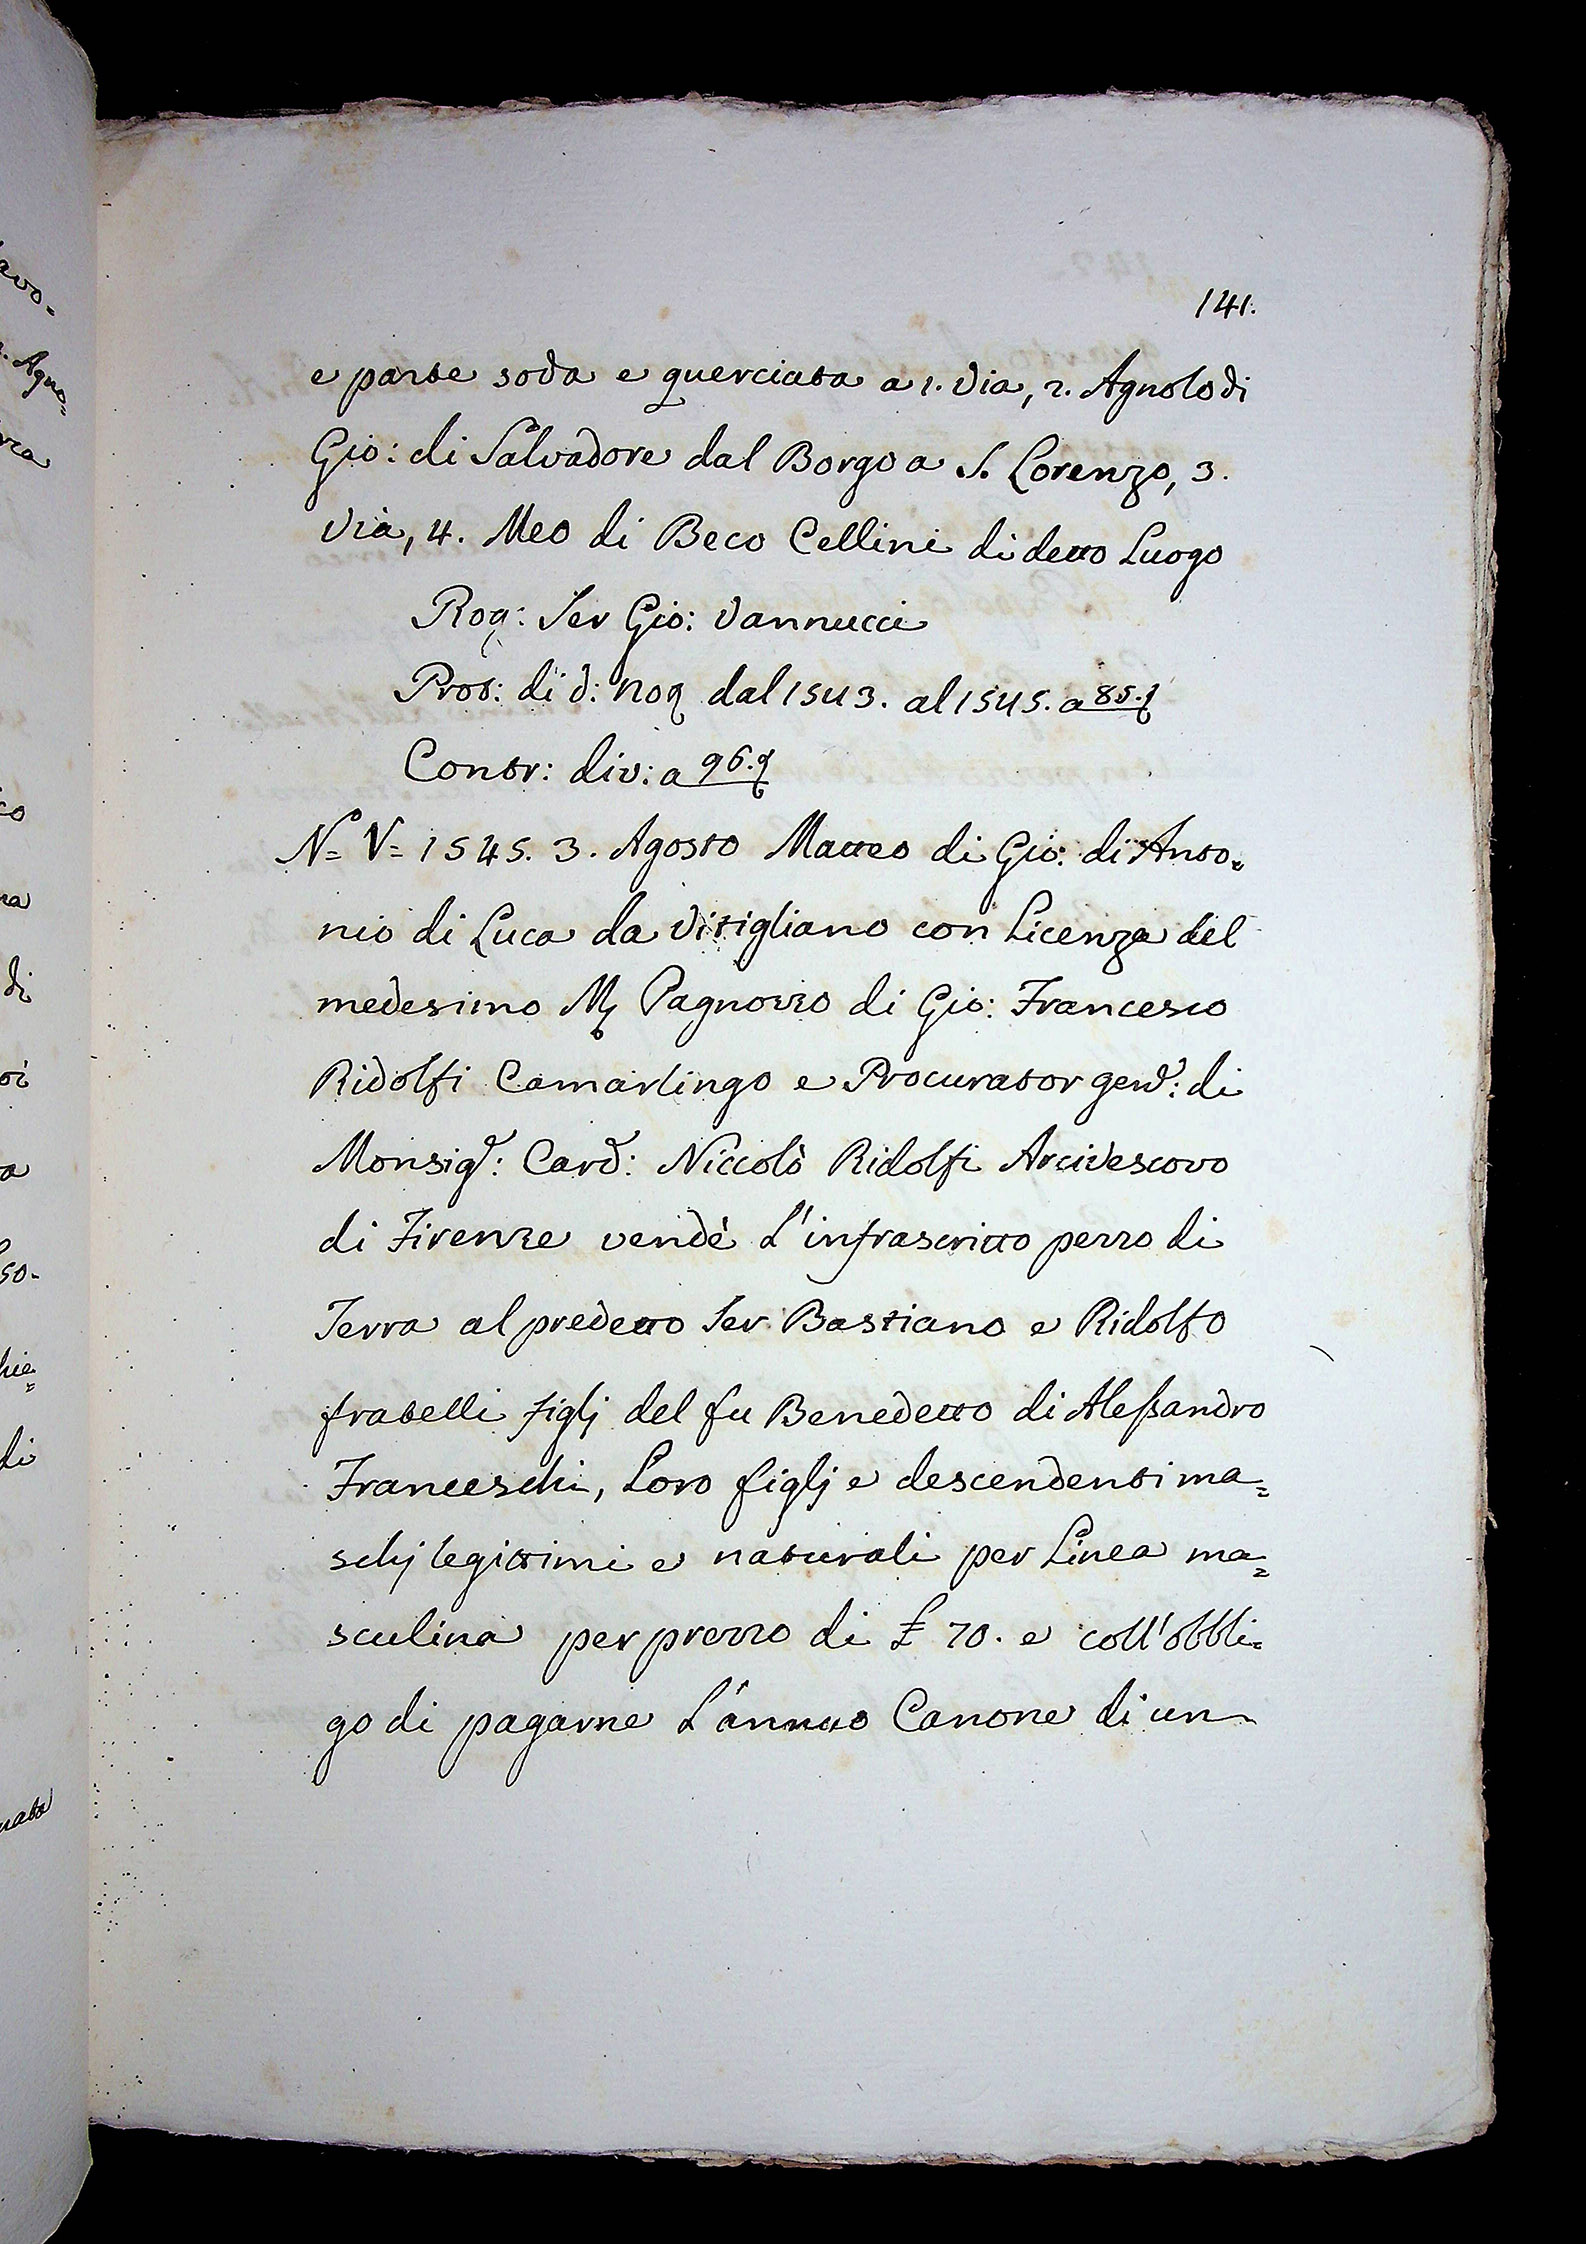 141.
e parte soda e querciata a 1. Via, 2. Agnolo di
Gio: di Salvadore dal Borgo a S. Lorenzo, 3.
Via, 4. Meo di Beco Cellini di detto Luogo
Rog: Ser Gio: Vannucci
Prot: di d: Nog dal 1543. al 1545. a 85.
Contr: div: a 96.
N= V= 1545. 3. Agosto Matteo di Gio: di Anto=
nio di Luca da Vitigliano con Licenza del
medesimo M Pagnozzo di Gio: Francesco
Ridolfi Camarlingo e Procurator gen: di
Monsig: Card: Niccolò Ridolfi Arcivescovo
di Firenze vendè L'infrascritto pezzo di
Terra al predetto Ser Bastiano e Ridolfo
fratelli figlj del fu Benedetto di Aleßandro
Franceschi, Loro figlj e descendenti ma=
schj legittimi e naturali per Linea ma=
sculina per prezzo di £ 70. e coll'obbli=
go di pagarne L'annuo Canone di un
avo=
Agno=
co
di
so=
di